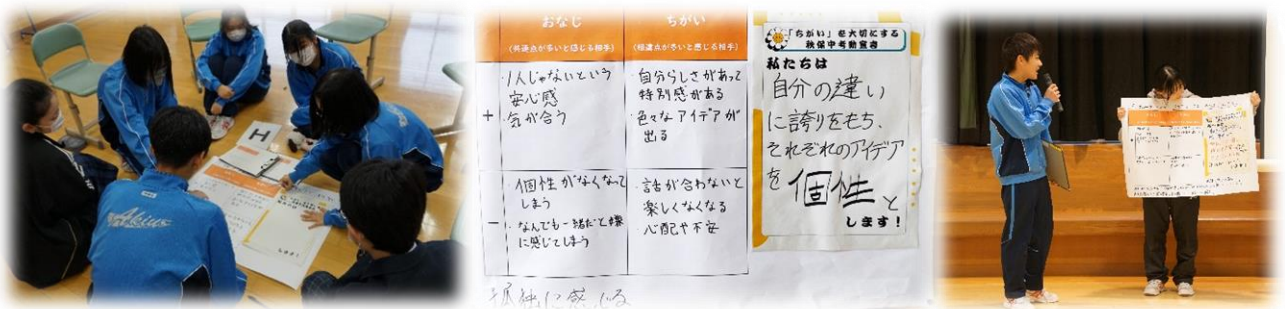 H
Akiu
おなじ
(共通点が多いと感じる相手)
ちがい
(相違点が多いと感じる相手)
+
・1人じゃないという
安心感
・気が合う
・自分らしさがあって
特別感がある
・色々なアイデアが
出る
-
・個性がなくなって
しまう
・なんでも一緒だと嫌
に感じてしまう
・話が合わないと
楽しくなくなる
・心配や不安
孤独に感じる
「ちがい」を大切にする
秋保中行動宣言
私たちは
自分の違い
に誇りをもち、
それぞれのアイデア
を個性と
します!